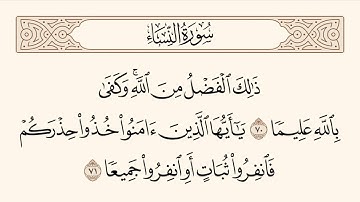 سُورَةُ النِّسَاءِ
ذَٰلِكَ ٱلْفَضْلُ مِنَ ٱللَّهِۚ وَكَفَىٰ
بِٱللَّهِ عَلِيمٗا ٧٠ يَٰٓأَيُّهَا ٱلَّذِينَ ءَامَنُواْ خُذُواْ حِذْرَكُمْ
فَٱنفِرُواْ ثُبَاتٍ أَوِ ٱنفِرُواْ جَمِيعٗا ٧١